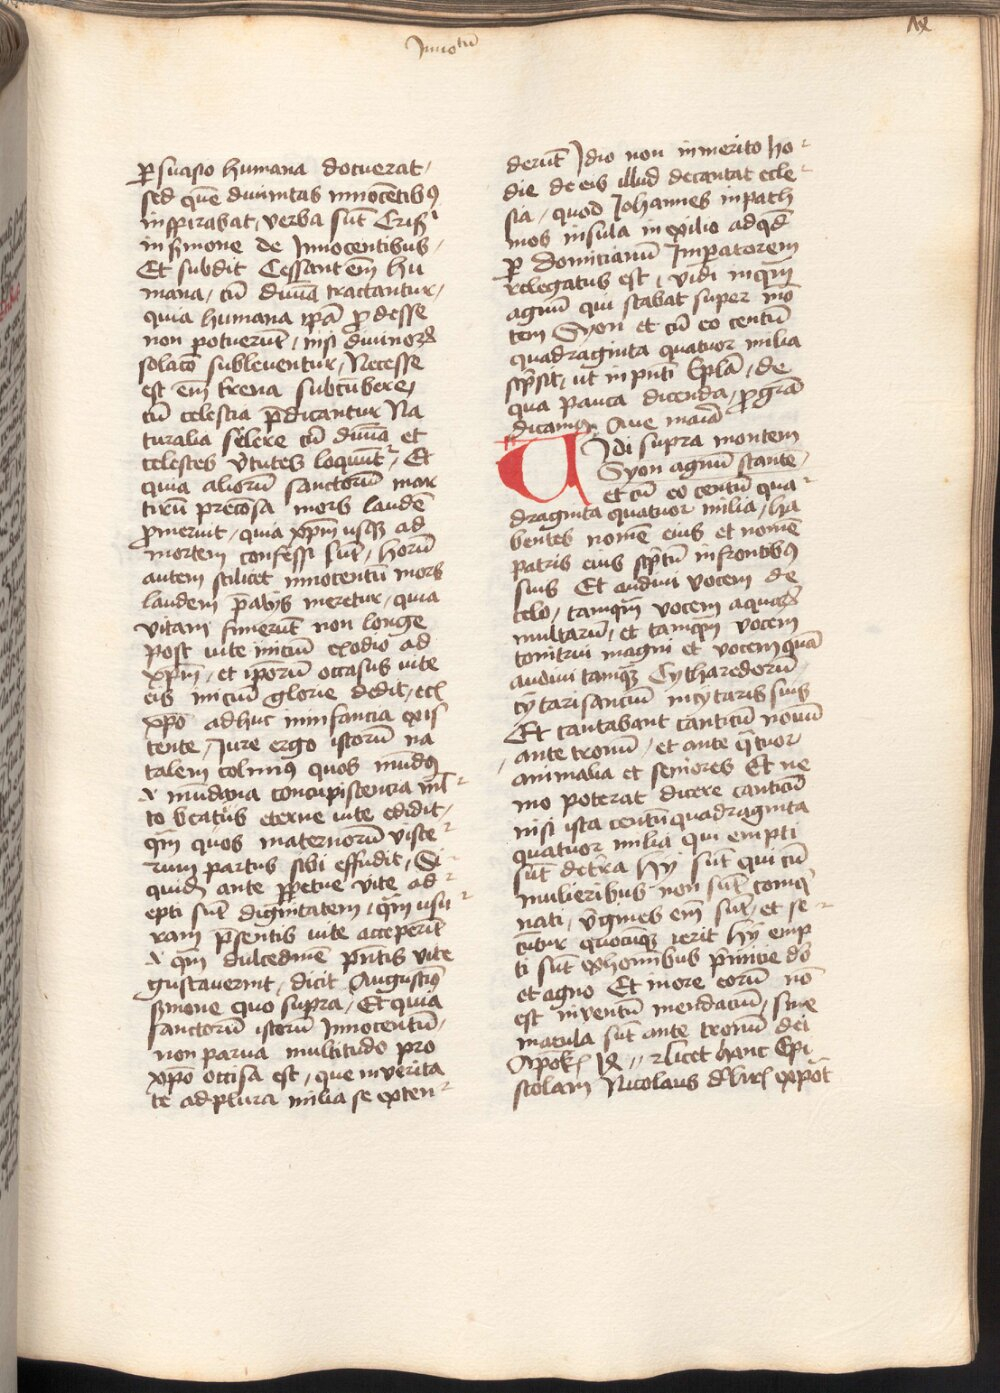 Innocentum
lx
ꝑsuasio humana docuerat,
sed quē divinitas innocētibꝰ
inspirabat, verba sūt Crisͥ
in sermone de Innocentibus,
Et subdit Cessant em̄ hu
mana, cū divīa tractantur,
quia humana ip̄a ꝓdesse
non potuerūt, nisi divinoꝝ
solacō subleventur, Necesse
est em̄ terena subcūbere,
cū celestia p̄dicantur Na
turalia silere cū divīa et
celestes v̄tutes loquūtᷣ, Et
quia alioꝝ sanctorū mar
tirū preciosa mors laudē
ꝓmeruit, quia xp̄m usqꝫ ad
mortem confessi sūt, horū
autem scilicet innocentū mors
laudem p̄atijs meretur, quia
vitam finierūt non longe
post vite iniciū exodio ad
xp̄m, et ip̄orū occasus vite
eis iniciū glorie dedit, etꝫ
xp̄o adhuc in infancia exis
tente, Jure ergo istorū na
talem colimꝰ quos mūdꝰ
mūdana concupiscencia
to beatius eterne vite edidit,
qm̄ quos maternorū visce
rum partus sibi effudit, Si
quidē ante ꝑpetue vite ad
epti sūt dignitatem, qm̄ usu
ram p̄sentis vite acceperūt
qm̄ dulcedinē p̄ntis vite
gustaverint, dicit Augustinꝰ
sermone quo supra, Et quia
sanctorū istorū Innocentiū,
non parva multitudo pro
xp̄o occisa est, que in verita
te ad plura milia se exten
derūt Idio non inmerito ho
die de eis illud decantat ecle
sia, quod Johannes in path
mos insula in exilio ad qd̄
ꝑ Domicianū Imꝑatorem
relegatus est, vidi inqm̄
agnū qui stabat super mō
tem Syon et cū eo centū
quadraginta quatuor milia
scp̄sit, ut in p̄nti Ep̄la, de
qua pauca dicenda, ꝓ grā
dicamꝰ Ave maīa
Vidi supra montem
Syon agnū stante,
et cū eo centū qua
draginta quatuor milia, ha
bentes nomē eius et nomē
patris eius scp̄tū in frontibꝰ
suis Et audivi vocem de
celo, tamqm̄ vocem aquaꝝ
multarū, et tamqm̄ vocem
tonitrui magni et vocem quā
audivi tamqꝫ Cytharedorū
cytarisanciū in cytaris suis
Et cantabant canticū novū
ante tronū, et ante qͣtuor
animalia et seniores Et ne
mo poterat dicere canticū
nisi ista centū quadraginta
quatuor milia qui empti
sūt de tra hij sūt qui cū
mulieribus non sūt conqͥ
nati, v̄gines em̄ sūt, et se
cūtur quocūqꝫ ierit hij emp
ti sūt ex hominibus p̄micie dō
et agno Et in ore eorū nō
est inventū mendaciū, sine
macula sūt ante tronū dei
Apok
licet hanc Epi
stolam Nicolaus exp̄o̅t